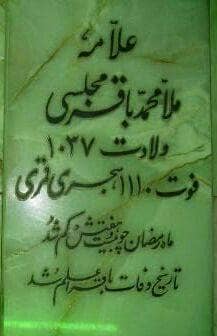 علامه
ملا محمد باقر مجلسی
ولادت ۱۰۳۷
فوت ۱۱۱۰ هجری قمری
ماه رمضان چو بیست و هفتش کم شد
تاریخ وفات باقر اعلم شد